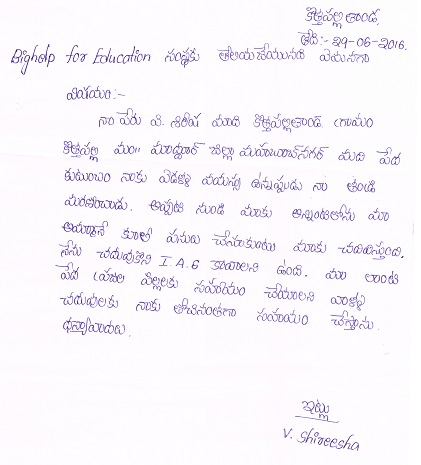 కొత్తపల్లి తాండ,
తేది:- 29-06-2016.
Bighelp for Education సంస్థకు తెలియజేయునది ఏమనగా
విషయం:-
నా పేరు వి. శిరీష మాది కొత్తపల్లితాండ గ్రామం
కొత్తపల్లి మం" మద్దూర్ జిల్లా మహబూబ్‌నగర్ మది పేద
కుటుంబం నాకు ఏడేళ్ళ వయస్సు ఉన్నప్పుడు నా తండ్రి
మరణించాడు. అప్పటి నుండి మాకు అన్నింటిలోను మా
అమ్మానే కూలీ పనులు చేసుకుంటు మాకు చదివిస్తుంది.
నేను చదువుకొని I A.S కావాలని ఉంది. మా లాంటి
పేద ప్రజల పిల్లలకు సహాయం చేయాలని వాళ్ళ
చదువులకు నాకు తోచినంతగా సహాయం చేస్తాను.
ధన్యవాదాలు.
ఇట్లు
V. Shireesha